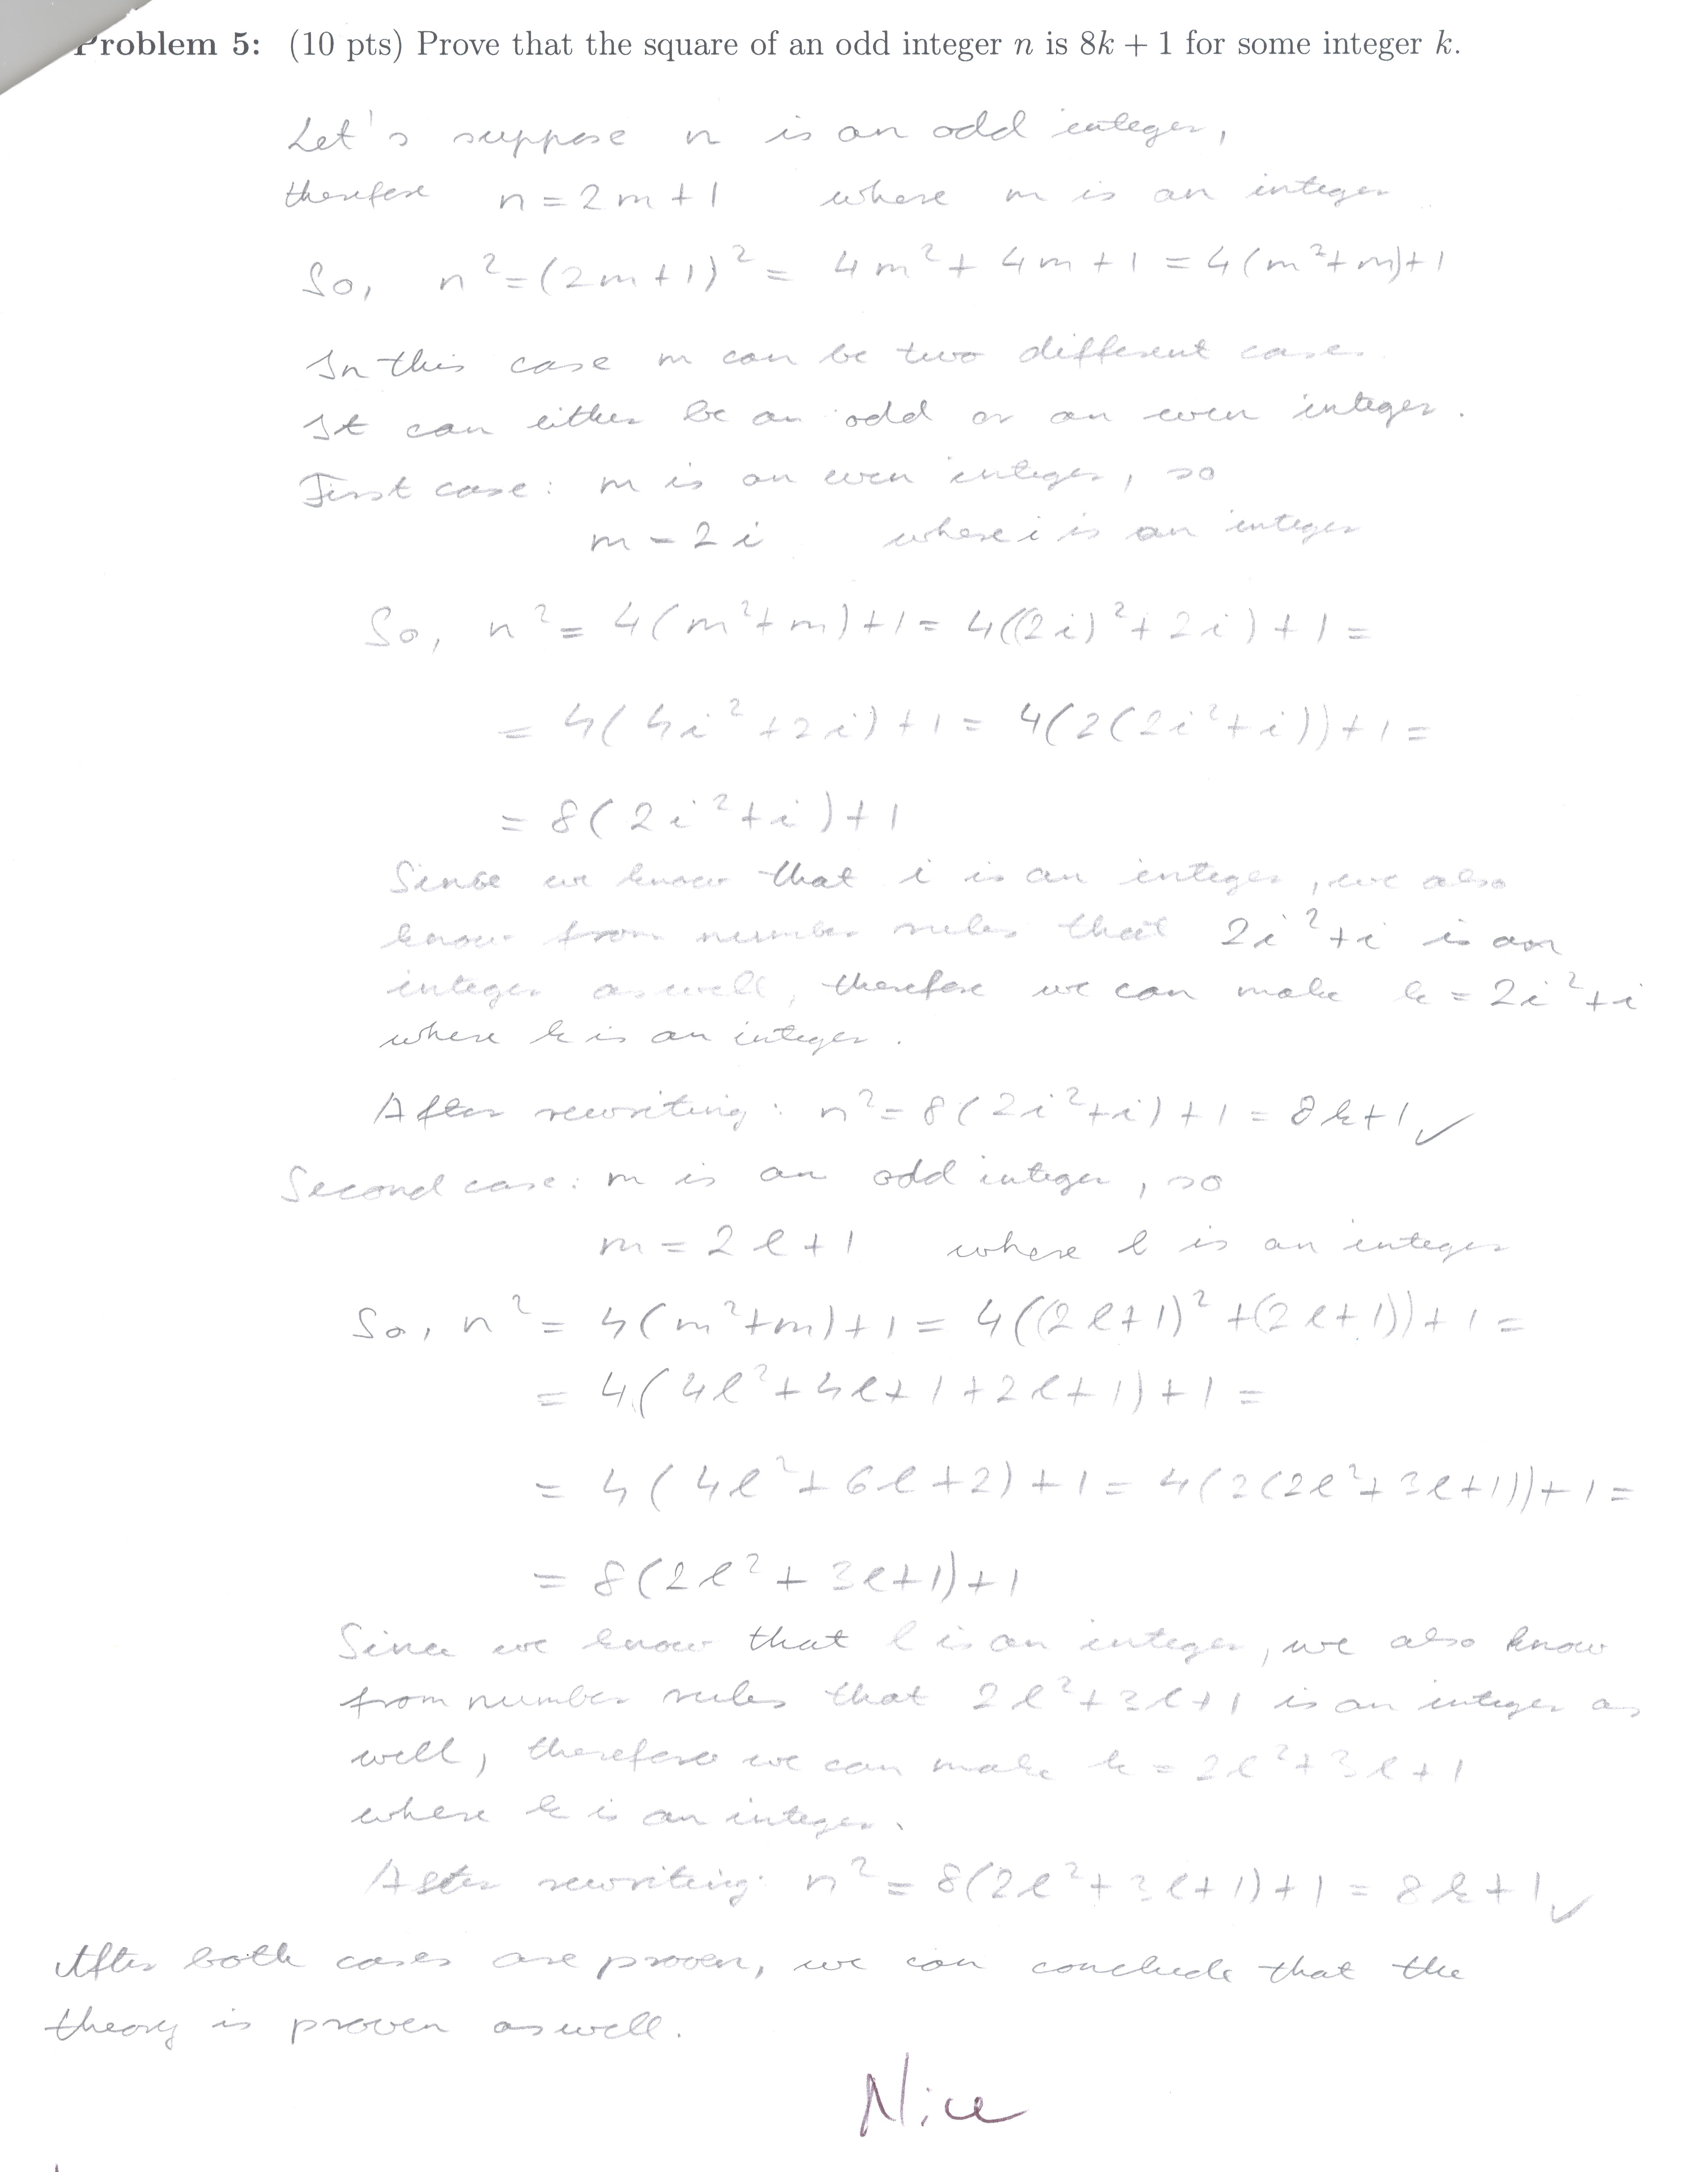 Problem 5: (10 pts) Prove that the square of an odd integer n is 8k + 1 for some integer k.
Let's suppose n is an odd integer,
therefore n = 2m + 1 where m is an integer
So, n² = (2m+1)² = 4m² + 4m + 1 = 4(m²+m)+1
In this case m can be two different cases.
It can either be an odd or an even integer.
First case: m is an even integer, so
m = 2i where i is an integer
So, n² = 4(m²+m)+1 = 4((2i)²+2i)+1 =
= 4(4i²+2i)+1 = 4(2(2i²+i))+1 =
= 8(2i²+i)+1
Since we know that i is an integer, we also
know from number rules that 2i²+i is an
integer as well, therefore we can make k = 2i²+i
where k is an integer.
After rewriting: n² = 8(2i²+i)+1 = 8k+1 ✓
Second case: m is an odd integer, so
m = 2l+1 where l is an integer
So, n² = 4(m²+m)+1 = 4((2l+1)²+(2l+1))+1 =
= 4(4l²+4l+1+2l+1)+1 =
= 4(4l²+6l+2)+1 = 4(2(2l²+3l+1))+1 =
= 8(2l²+3l+1)+1
Since we know that l is an integer, we also know
from number rules that 2l²+3l+1 is an integer as
well, therefore we can make k = 2l²+3l+1
where k is an integer.
After rewriting: n² = 8(2l²+3l+1)+1 = 8k+1 ✓
After both cases are proven, we can conclude that the
theory is proven as well.
Nice